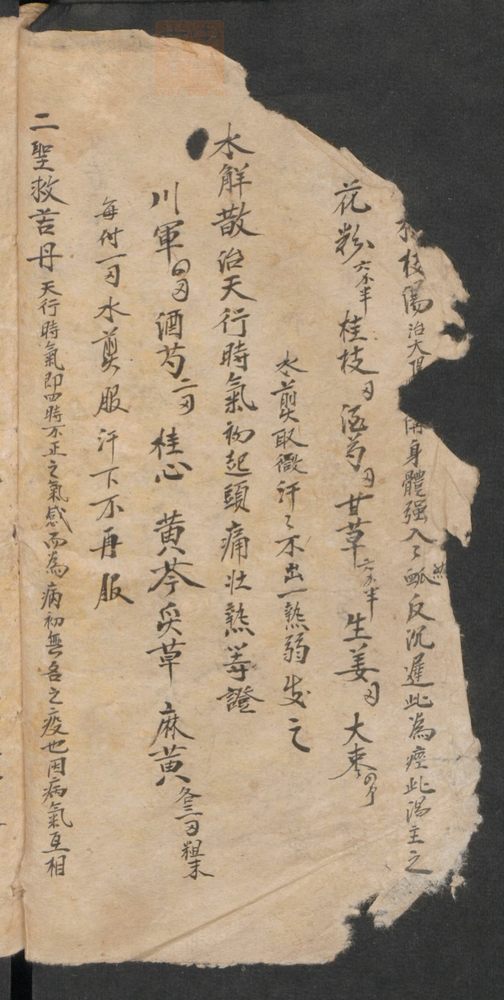 枝湯治太 身體强入〻然 脈反沉遲此為痙此湯主之
花粉六分半 桂枝 酒芍 甘草六分半 生姜 大枣
水煎取微汗〻不出一熱弱發之
水解散治天行時氣初起頭痛壯熱等證
川軍 酒芍 桂心 黃芩炙草 麻黃 粗末
每付 水煎服汗下不再服
二聖救苦丹天行時氣即四時不正之氣感而為病初無名之疫也因病氣互相